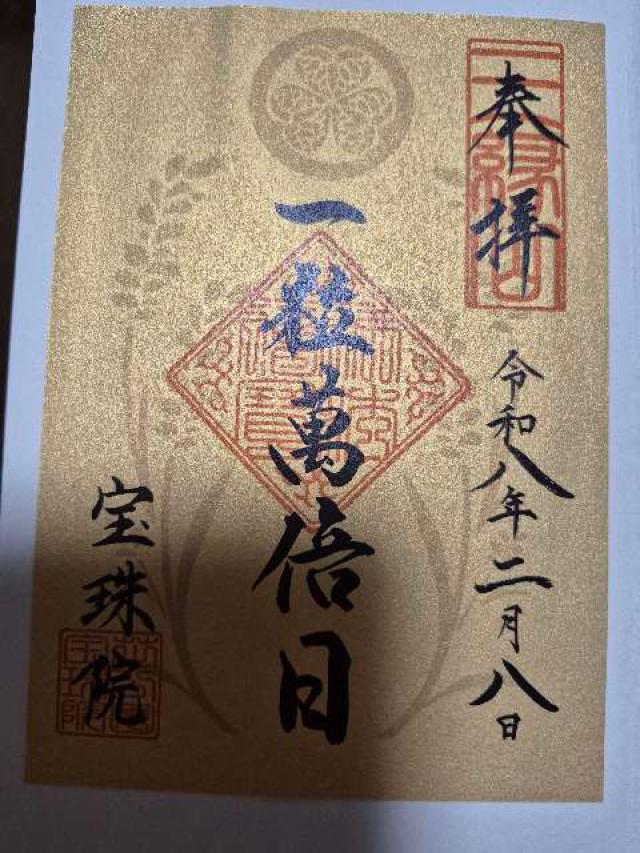 奉拝
令和八年二月八日
一粒萬倍日
宝珠院